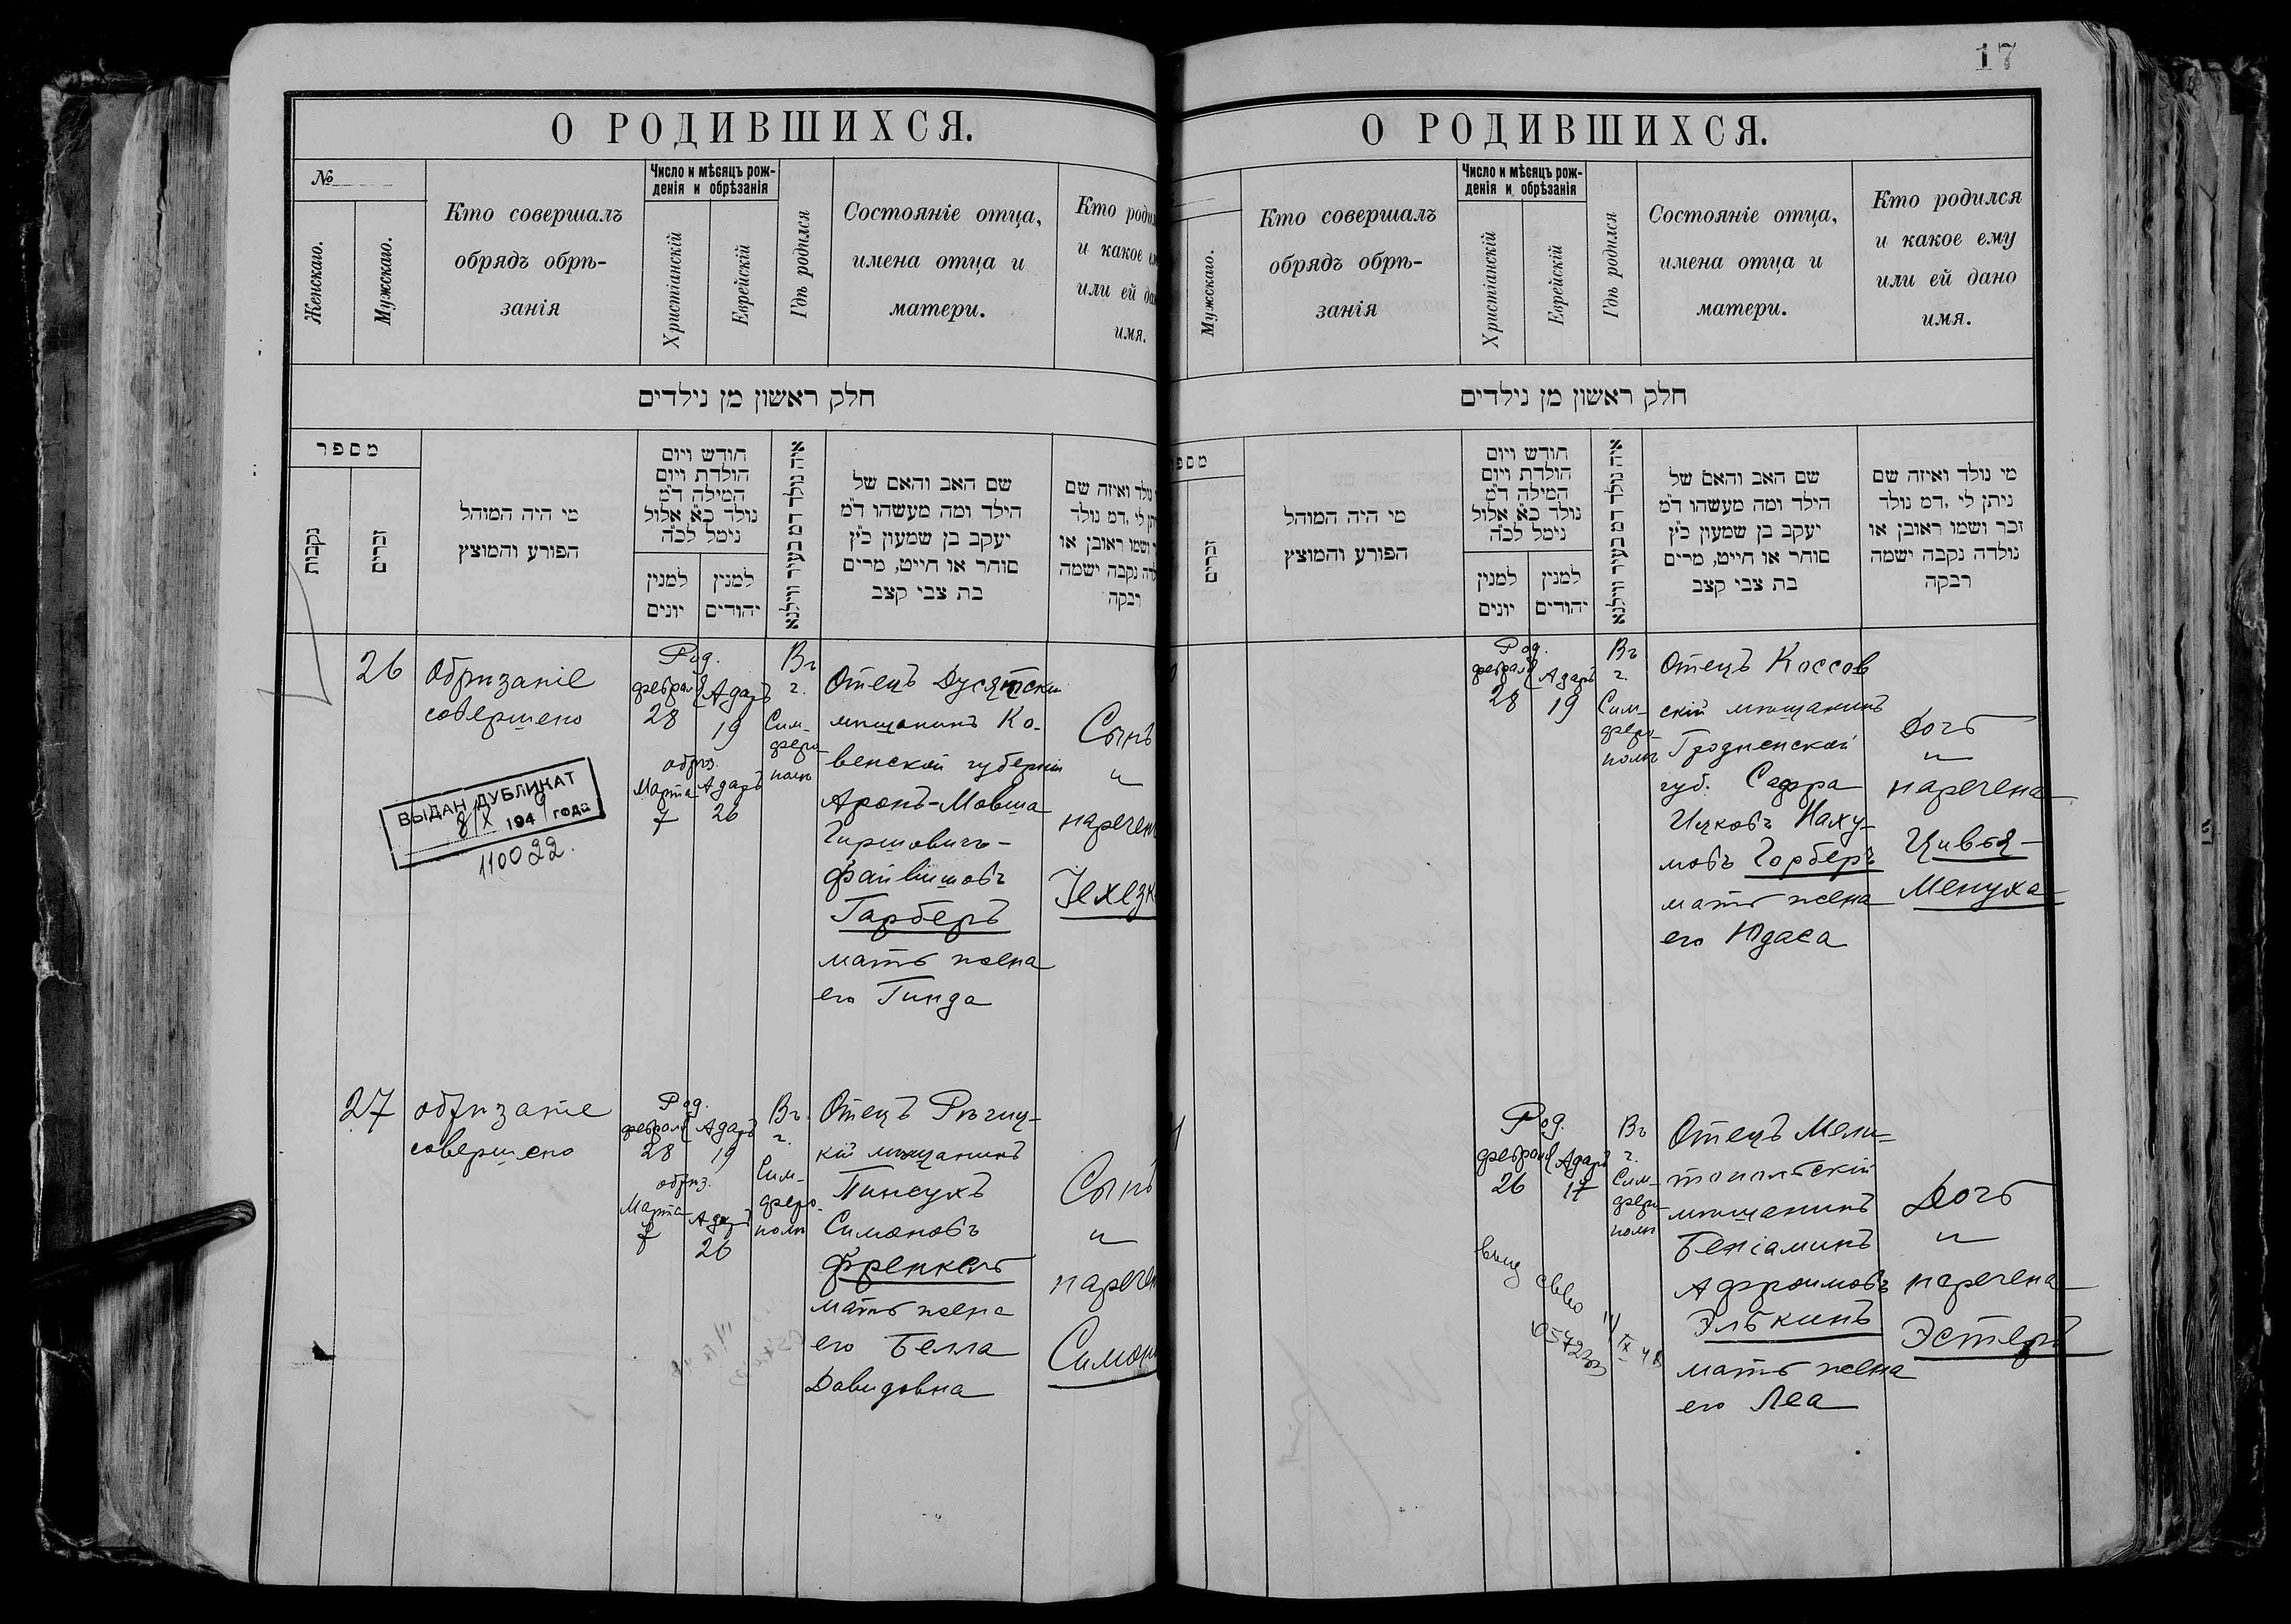 О РОДИВШИХСЯ.
№
Женскаго.
Мужскаго.
Кто совершалъ
обрядъ обрѣ-
занія
Число и мѣсяцъ рож-
денія и обрѣзанія
Христіанскій
Еврейскій
Гдѣ родился
Состояніе отца,
имена отца и
матери.
Кто роди
и какое ем
или ей да
имя.
חלק ראשון מן נילדים
מספר
נקבות
זכרים
מי היה המוהל
הפורע והמוצץ
חודש ויום
הולדת ויום
המילה ד״מ
נולד כ״א אלול
נימל לכ״ה
למנין
יונים
למנין
יהודים
איה נולד דמ בעיר ווילנא
שם האב והאם של
הילד ומה מעשהו ד״מ
יעקב בן שמעון כ״ץ
סוחר או חייט, מרים
בת צבי קצב
נולד ואיזה שם
יתן לי ,דמ נולד
ושמו ראובן או
לדה נקבה ישמה
רבקה
26
Обрѣзаніе
совершено
ВЫДАН ДУБЛИКАТ
8/X 1949 года
110022.
Род.
февраля Адаръ
28 19
обрѣз.
Марта Адаръ
7 26
Въ
г.
Сим-
феро-
полѣ
Отецъ Дусятски
мѣщанинъ Ко-
венской губерніи
Аронъ-Мовша
Гиршовичъ-
Файвишовъ
Гарберъ
мать жена
его Гинда
Сынъ
"
наречен
Іехезк
27
обрѣзаніе
совершено
Род.
февраля Адаръ
28 19
обрѣз.
Марта Адаръ
7 26
Въ
г.
Сим-
феро-
полѣ
Отецъ Рѣчиц-
кій мѣщанинъ
Пинсухъ
Симоновъ
Френкель
мать жена
его Белла
Давидовна
Сынъ
"
наречен
Симон
17
О РОДИВШИХСЯ.
Мужскаго.
Кто совершалъ
обрядъ обрѣ-
занія
Число и мѣсяцъ рож-
денія и обрѣзанія
Христіанскій
Еврейскій
Гдѣ родился
Состояніе отца,
имена отца и
матери.
Кто родился
и какое ему
или ей дано
имя.
חלק ראשון מן נילדים
מספ
זכרים
מי היה המוהל
הפורע והמוצץ
חודש ויום
הולדת ויום
המילה ד״מ
נולד כ״א אלול
נימל לכ״ה
למנין
יונים
למנין
יהודים
איה נולד דמ בעיר ווילנא
שם האב והאם של
הילד ומה מעשהו ד״מ
יעקב בן שמעון כ״ץ
סוחר או חייט, מרים
בת צבי קצב
מי נולד ואיזה שם
ניתן לי ,דמ נולד
זכר ושמו ראובן או
נולדה נקבה ישמה
רבקה
Род.
февраля Адаръ
28 19
Въ
г.
Сим-
феро-
полѣ
Отецъ Коссов
скій мѣщанинъ
Гродненской
губ. Сафра
Ицковъ Наху-
мовъ Горберъ
мать жена
его Юдаса
Дочь
"
наречена
Цивья-
Менуха
Род.
февраля Адаръ
26 17
Въ
г.
Сим-
феро-
полѣ
Отецъ Мели-
топольскій
мѣщанинъ
Бенiаминъ
Афроимовъ
Элькинъ
мать жена
его Леа
Дочь
"
наречена
Эстеръ